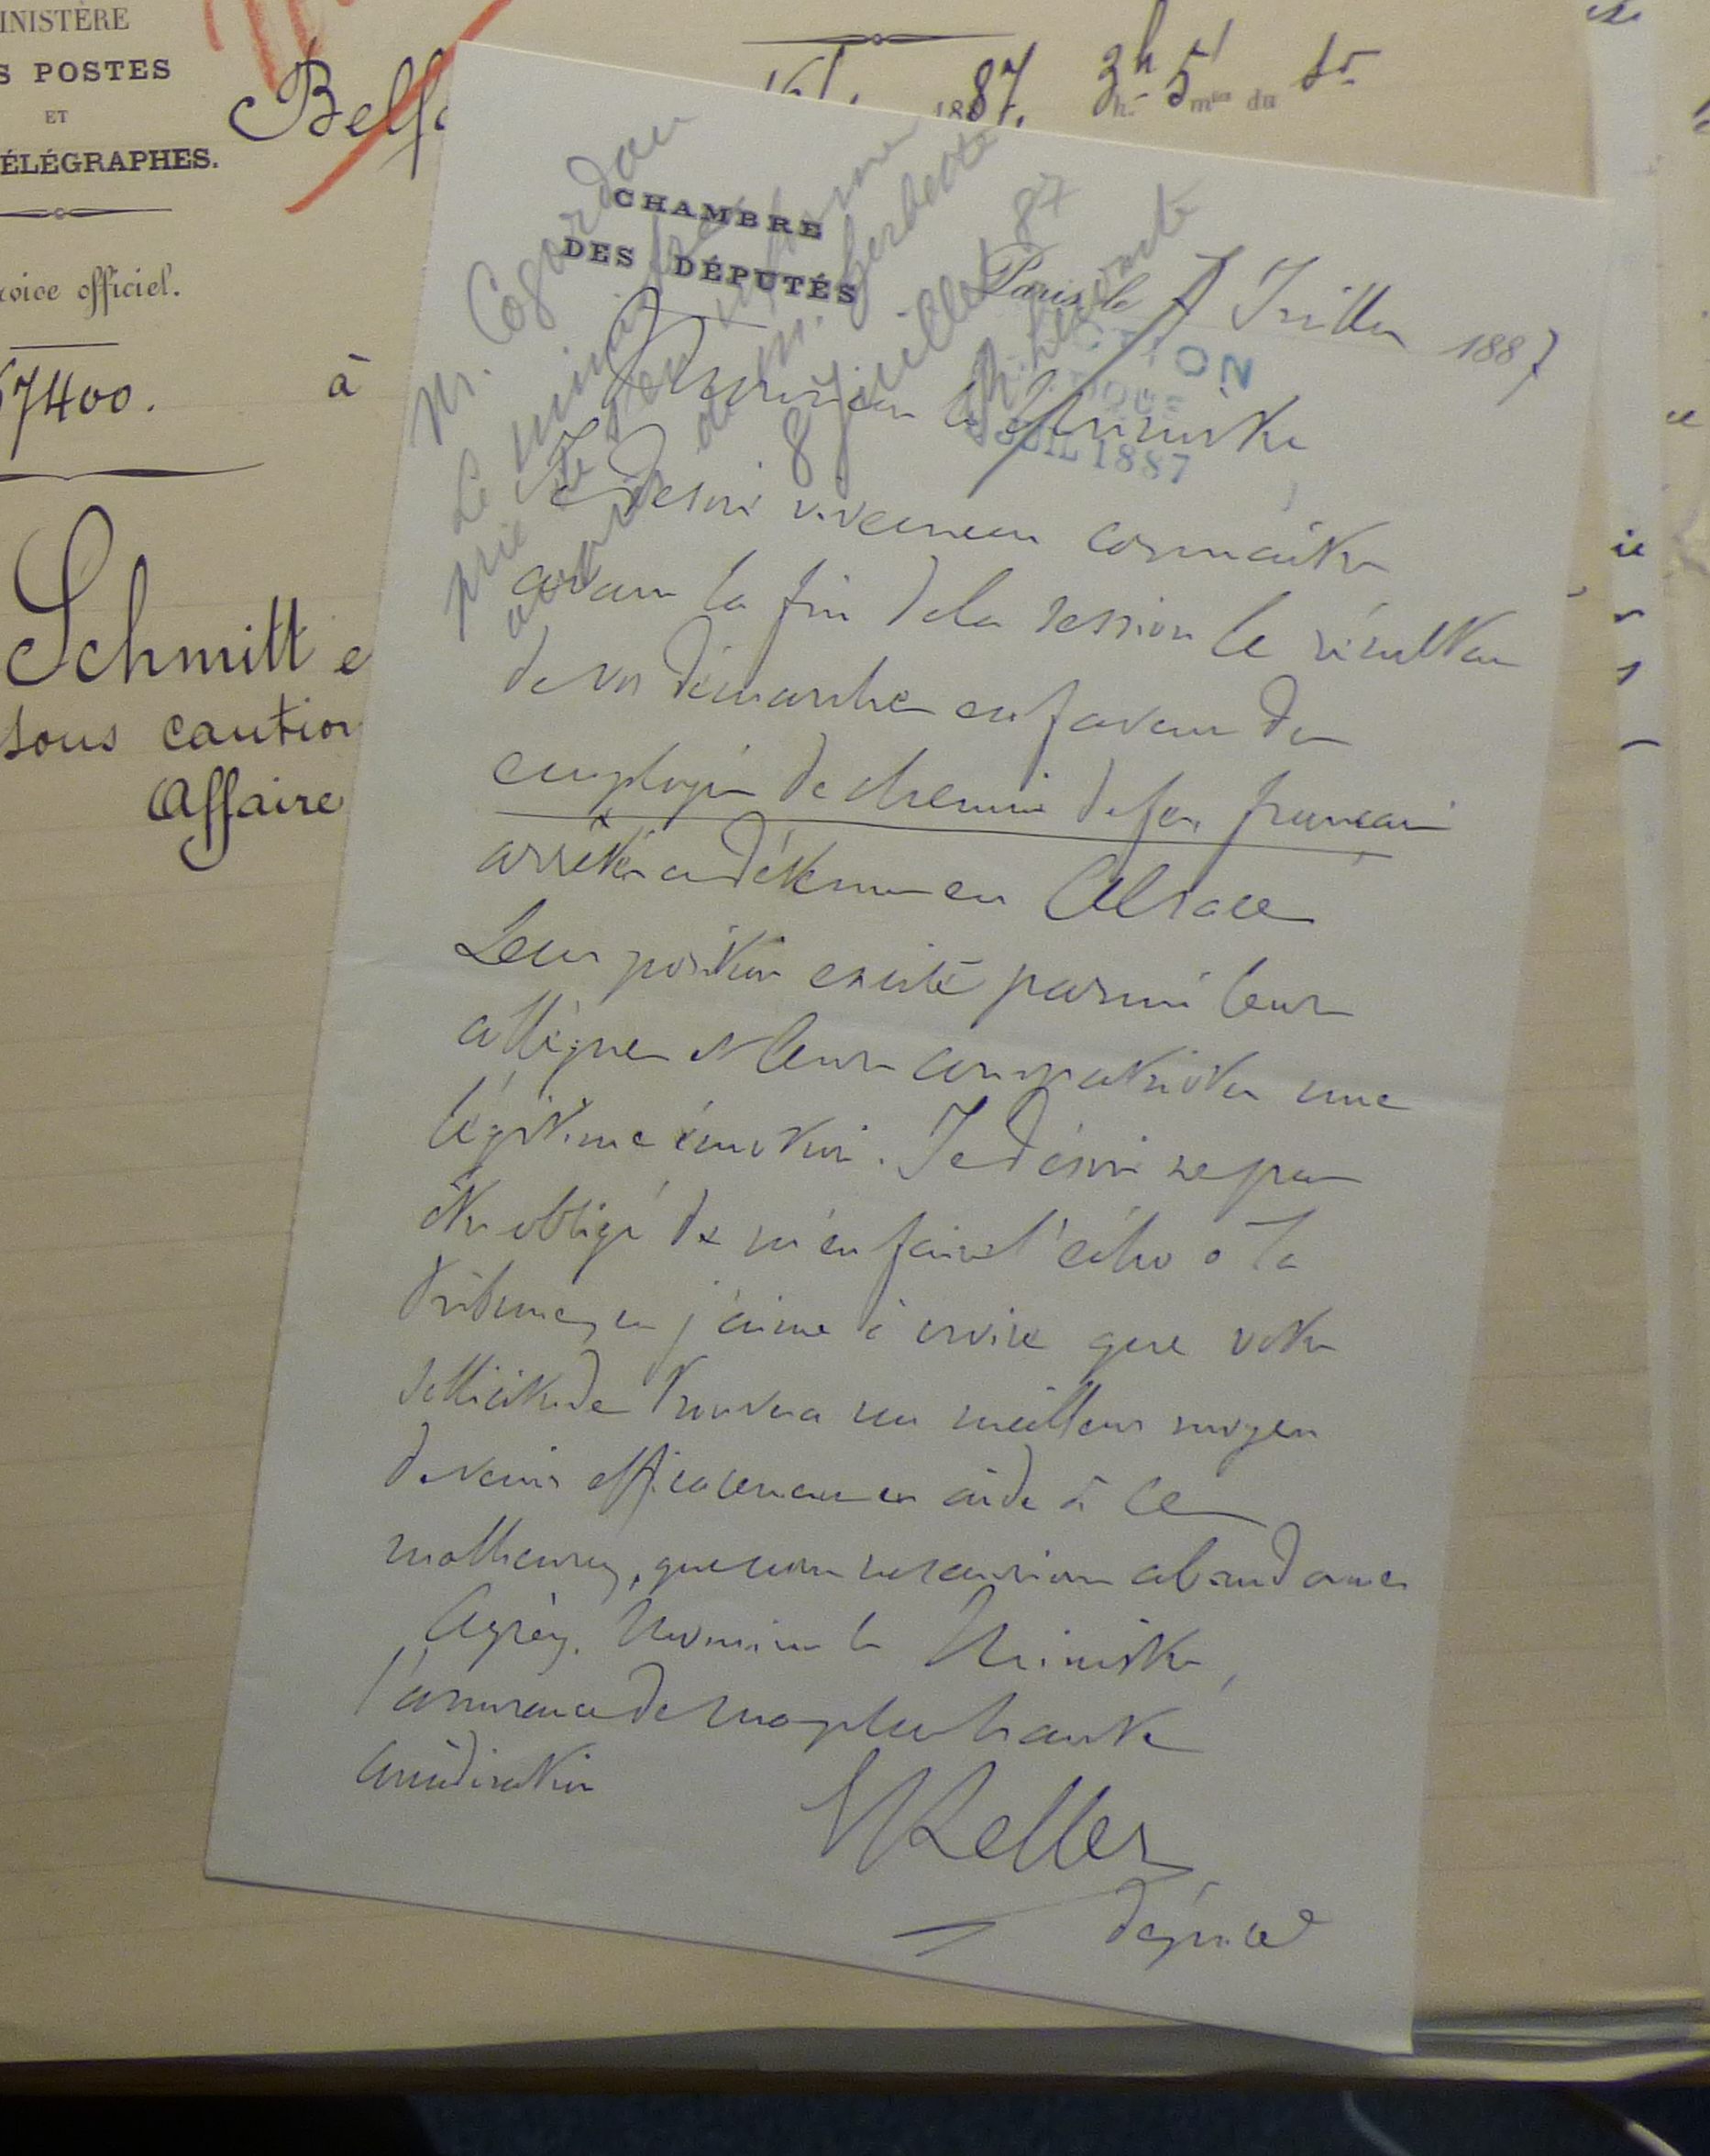 INISTÈRE
S POSTES
ET
ÉLÉGRAPHES.
rvice officiel.
57400.
à
Belfo
1887. 3h 5 mes du sr
Schmitt e
sous caution
Affaire
CHAMBRE
DES DÉPUTÉS
M. Cogordan
Le ministre
prie de
avant
de M. Herbette
8 juillet 87
Paris, le 7 Juillet 1887
JUIL 1887
Monsieur le Ministre
Je desire vivement connaitre
avant la fin de la session le résultat
de vos démarches en faveur des
employés de chemin de fer français
arrêtés et détenus en Alsace
Leur position excite parmi leurs
collègues et leurs compatriotes une
légitime émotion. Je désire ne pas
être obligé de m'en faire l'écho à la
tribune, et j'aime à croire que votre
sollicitude trouvera un meilleur moyen
de venir efficacement en aide à ces
malheureux, que nous ne saurions abandonner
Agréez, Monsieur le Ministre,
l'assurance de ma plus haute
considération
Keller
député